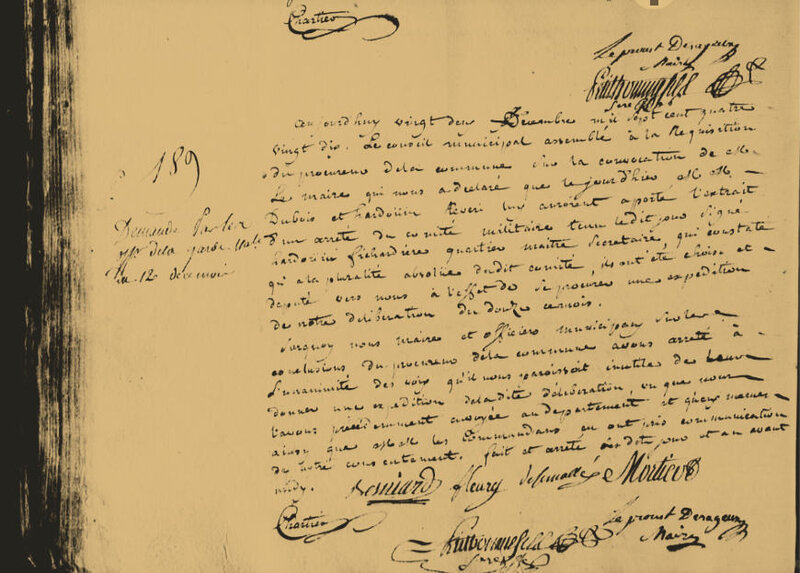 Chartier
Le proust Derageux
Maire
aujourdhuy vingt deux Decembre mil sept cent quatre
vingt dix. Le conseil municipal assemblé à la Requisition
du procureur dela commune sur la convocation de M.
Le maire qui nous a declaré que le jourd'hier MM
Dubois et hardouin Reveri lui auroient aporté l'extrait
d'un arreté du comité militaire tenu ledit jour signé
hardouin fichardière quartier maître Secretaire, qui constate
qu'a la pluralité absolue dudit comité, ils ont été choisi et
deputé vers nous à l'effet de se procurer une expedition
de notre deliberation du douze ce mois.
Surquoy nous maire et officiers municipaux sur les
conclusions du procureur dela commune avons arreté à
l'unanimité des voix qu'il nous paroissoit inutile de leur
donner une expedition deladite déliberation, vu que nous
l'avons précédemment envoyée au departement et
ainsi que MM les Commandans en ont pris communication
de notre consentement. fait et arreté lesdits jour et an avant
midy.
189
Demande par les
off. dela garde nat.le
du 12 decembre
Besniard fleury Morticos
Chartier
Le proust Derageux
Maire